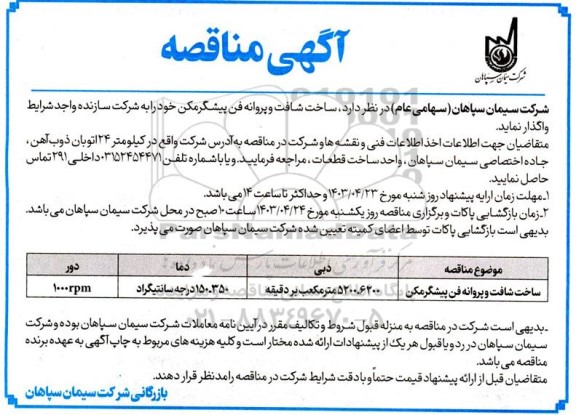 آگهی مناقصه
شرکت سیمان سپاهان
شرکت سیمان سپاهان (سهامی عام) در نظر دارد، ساخت شافت و پروانه فن پیشگرمکن خود را به شرکت سازنده واجد شرایط
واگذار نماید.
متقاضیان جهت اطلاعات اخذ اطلاعات فنی و نقشه ها و شرکت در مناقصه به آدرس شرکت واقع در کیلومتر ۲۴ اتوبان ذوب آهن،
جاده اختصاصی سیمان سپاهان، واحد ساخت قطعات، مراجعه فرمایید. و یا با شماره تلفن ۰۳۱۵۲۴۵۴۴۷۱ داخلی ۲۹۱ تماس
حاصل نمایید.
۱ـ مهلت زمان ارایه پیشنهاد روز شنبه مورخ ۱۴۰۳/۰۴/۲۳ و حداکثر تا ساعت ۱۴ می باشد.
۲ـ زمان بازگشایی پاکات و برگزاری مناقصه روز یکشنبه مورخ ۱۴۰۳/۰۴/۲۴ ساعت ۱۰ صبح در محل شرکت سیمان سپاهان می باشد.
بدیهی است بازگشایی پاکات توسط اعضای کمیته تعیین شده شرکت سیمان سپاهان صورت می پذیرد.
موضوع مناقصه دبی دما دور
ساخت شافت و پروانه فن پیشگرمکن ۵۲۰۰ـ۶۲۰۰ مترمکعب بر دقیقه ۱۵۰ـ۳۵۰ درجه سانتیگراد ۱۰۰۰rpm
ـ بدیهی است شرکت در مناقصه به منزله قبول شروط و تکالیف مقرر در آیین نامه معاملات شرکت سیمان سپاهان بوده و شرکت
سیمان سپاهان در رد و یا قبول هر یک از پیشنهادات ارائه شده مختار است و کلیه هزینه های مربوط به چاپ آگهی به عهده برنده
مناقصه می باشد.
متقاضیان قبل از ارائه پیشنهاد قیمت حتماً و با دقت شرایط شرکت در مناقصه را مدنظر قرار دهند.
بازرگانی شرکت سیمان سپاهان
۰۲۱-۸۸۳۴۹۶۷۰-۵